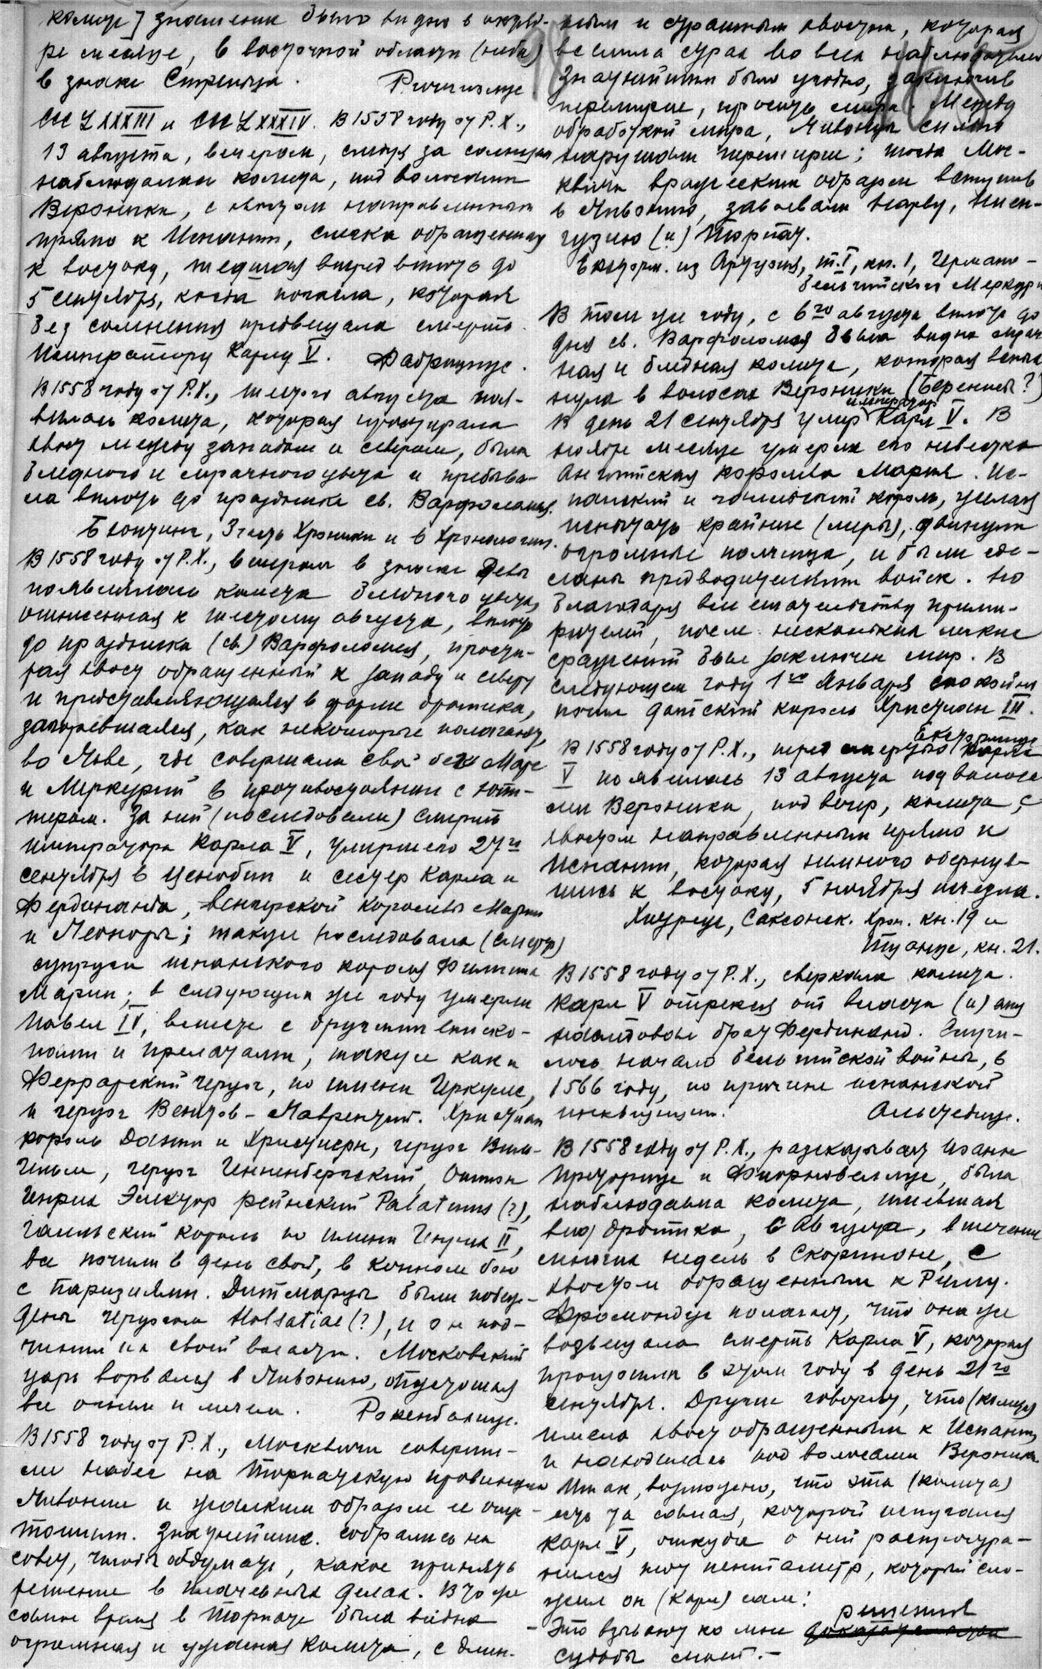 комце] знамение было видно в октяб-
ре месяце, в восточной области (неба)
в знаке Стрельца. Ричиолус
CCLXXXIII и CCLXXXIV. В 1558 году от Р.Х.,
13 августа, вечером, смотря за солнцем
наблюдалась комета, под волосами
Вероники, с хвостом направленным
прямо к Испании, слегка обращенная
к востоку, шедшая вперед вплоть до
5 сентября, когда погасла, которая
без сомнения предвещала смерть
Императору Карлу V. Фабрициус.
В 1558 году от Р.Х., шестого августа поя-
вилась комета, которая простирала
хвост между западом и севером, была
бледного и мрачного цвета и пребыва-
ла вплоть до праздника св. Варфоломея.
Бекопинг, 3 часть Хроники и в Хронологии.
В 1558 году от Р.Х., вечером в знаке Девы
появилась комета бледного цвета,
отнесенная к шестому августа, вплоть
до праздника (св.) Варфоломея, прости-
рая хвост обращенный к западу и северу
и представляющаяся в форме дротика,
загоревшаяся, как некоторые полагают,
во Льве, где совершали свой бег Марс
и Меркурий в противостоянии с Юпи-
тером. За ней (последовали) смерти
императора Карла V, умершего 27го
сентября в Ценобии и сестер Карла и
Фердинанда, венгерской королевы Марии
и Леоноры; также последовала (смерть)
супруги испанского короля Филиппа
Марии; в следующем же году умерли
Павел IV, вместе с другими еписко-
пами и прелатами, также как и
Феррарский герцог, по имени Геркулес,
и герцог Венетов - Лаврентий. Христиан
король Дании и Христиерн, герцог Виль-
гельм, герцог Генненбергский, Оттон
Генрих Электор Рейнский Palatums (?),
галльский король по имени Генрих II,
все почили в день свой, в конном бою
с паризиями. Дитмарцы были побеж-
дены герцогом Holsatiae (?), и он под-
чинил их своей власти. Московский
царь ворвался в Ливонию, опустошая
все огнем и мечем. Рокенбахиус.
В 1558 году от Р.Х., Москвичи соверши-
ли набег на Торпатскую провинцию
Ливонии и ужасным образом ее опус-
тошили. Знатнейшие собрались на
совет, чтобы обдумать, какое принять
решение в плачевных делах. В то же
самое время в Торпате была видна
огромная и ужасная комета, с длин-
ным и страшным хвостом, которая
вселила страх во всех наблюдателей
Знатнейшим было угодно, заключив
перемирие, просить мира. Между
обработкой мира, Ливонцы сильно
нарушали перемирие; тогда Мос-
квичи вражеским образом вступив
в Ливонию, завоевали Нарву, Ниен-
гузию (и) Торпат.
Бекогрм. из Артузия, т. I, кн. 1, Германо-
бельгийского Меркурия
В том же году, с 6го августа вплоть до
дня св. Варфоломея была видна мрач-
ная и бледная комета, которая вспых-
нула в волосах Вероники (Береники?)
В день 21 сентября умер император Карл V. В
ноябре месяце умерла его невестка
Английская королева Мария. Ис-
панский и галльский король, желая
испытать крайние (меры), двинули
огромные полчища, и были сде-
ланы предводителями войск. Но
благодаря вмешательству прими-
рителей, после нескольких легких
сражений был заключен мир. В
следующем году 1го Января спокойно
почил датский король Христиан III.
В 1558 году от Р.Х., перед смертью Карла
V появилась 13 августа под волоса-
ми Вероники, под вечер, комета, с
хвостом направленным прямо к
Испании, которая немного обернув-
шись к востоку, 5 ноября исчезла.
Хитреус, Саксонск. Хрон. кн. 19 и
Туанус, кн. 21.
В 1558 году от Р.Х., сверкала комета.
Карл V отрекся от власти (и) ему
наследовал брат Фердинанд. Случи-
лось начало бельгийской войны, в
1566 году, по причине испанской
инквизиции. Альстедиус.
В 1558 году от Р.Х., рассказывая Иоанн
Преториус и Фиорновеллус, была
наблюдаема комета, имевшая
вид дротика, 6 Августа, в течение
многих недель в Скорпионе, с
хвостом обращенным к Риму.
Фромондус полагает, что она же
возвещала смерть Карла V, которая
произошла в этом году в день 21го
сентября. Другие говорят, что (комета)
имела хвост обращенным к Испании,
и находилась под волосами Вероники.
Итак, возможно, что эта (комета)
есть та самая, которой испугался
Карл V, откуда о ней распростра-
нился тот пентаметр, который сло-
жил он (Карл) сам:
- Это взывают ко мне решения
судьбы моей. -